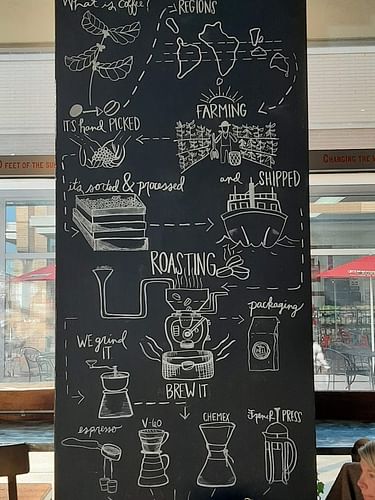 What is Coffee?
REGIONS
FARMING
IT'S hand PICKED
it's sorted & processed
and SHIPPED
ROASTING
packaging
WE grind IT
BREW IT
espresso
V-60
CHEMEX
French PRESS
FEET OF THE
CHANGING THE